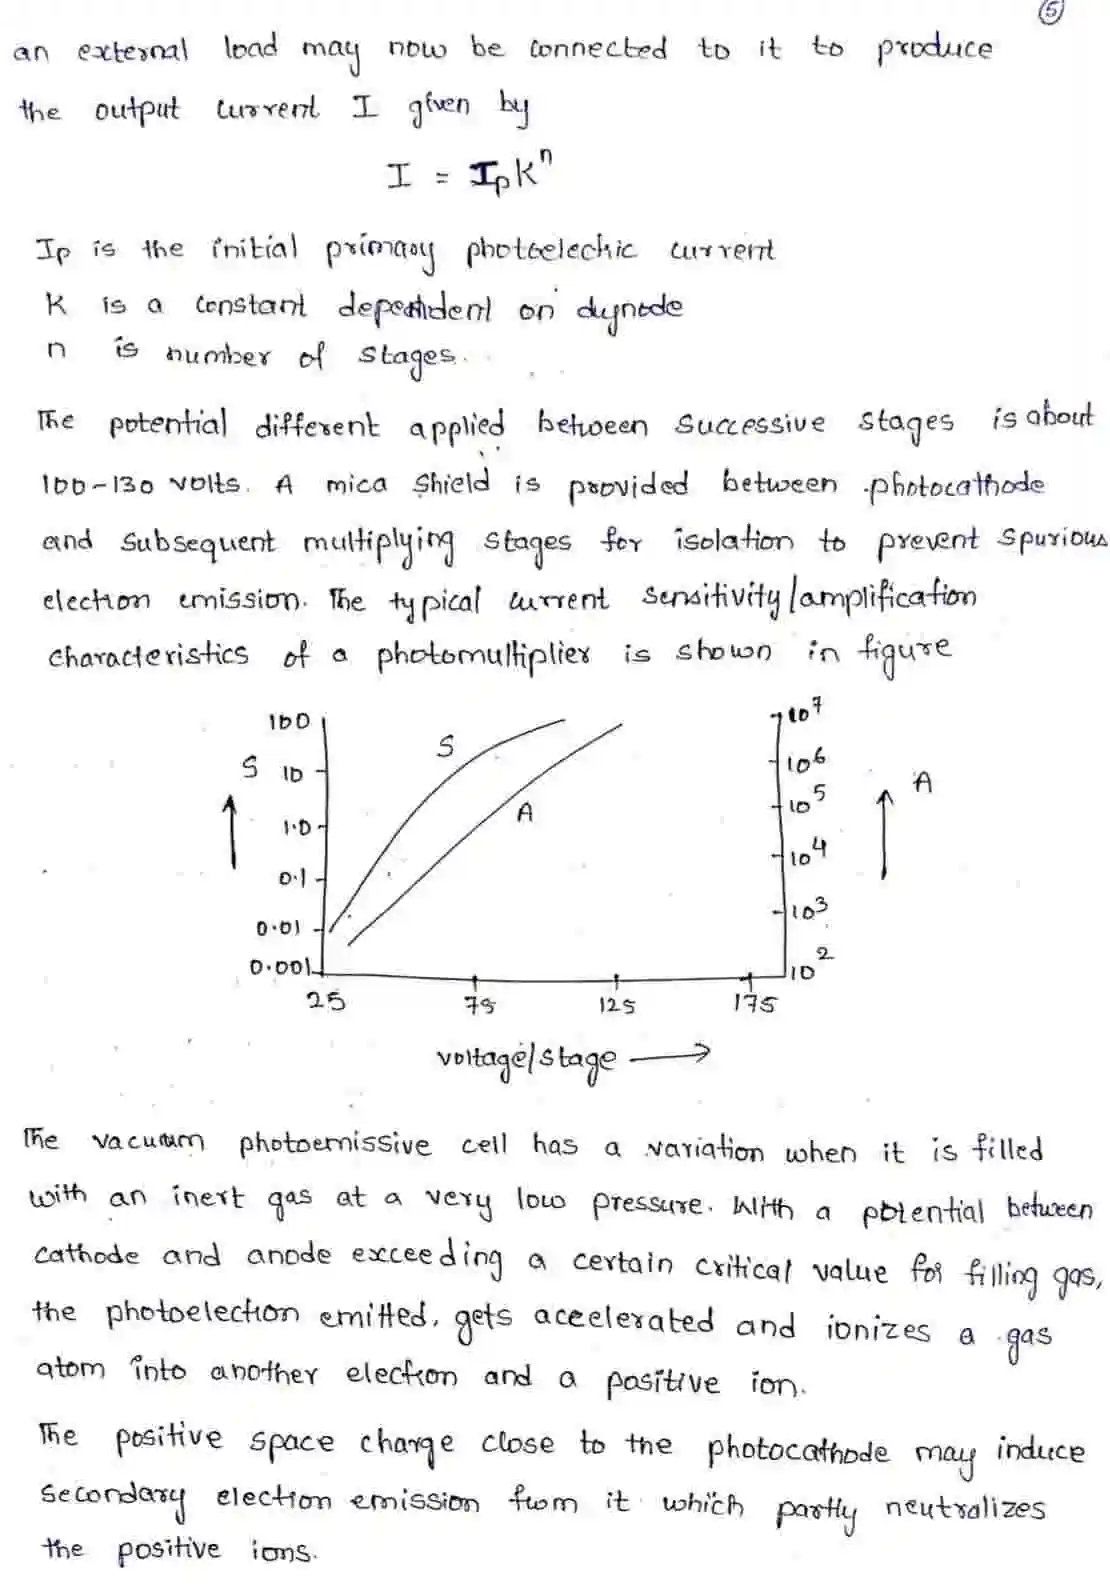 5
an external load may now be connected to it to produce
the output current I given by
I = Ipkⁿ
Ip is the initial primary photoelectric current
K is a constant dependent on dynode
n is number of stages.
The potential different applied between successive stages is about
100-130 volts. A mica shield is provided between photocathode
and subsequent multiplying stages for isolation to prevent spurious
election emission. The typical current sensitivity/amplification
characteristics of a photomultiplier is shown in figure
100
10⁷
S
S 10
10⁶
A
10⁵
1.0
A
10⁴
0.1
10³
0.01
0.001
10²
25 75 125 175
voltage/stage
The vacuum photoemissive cell has a variation when it is filled
with an inert gas at a very low pressure. With a potential between
cathode and anode exceeding a certain critical value for filling gas,
the photoelection emitted, gets aceelerated and ionizes a gas
atom into another election and a positive ion.
The positive space charge close to the photocathode may induce
secondary election emission from it which partly neutralizes
the positive ions.